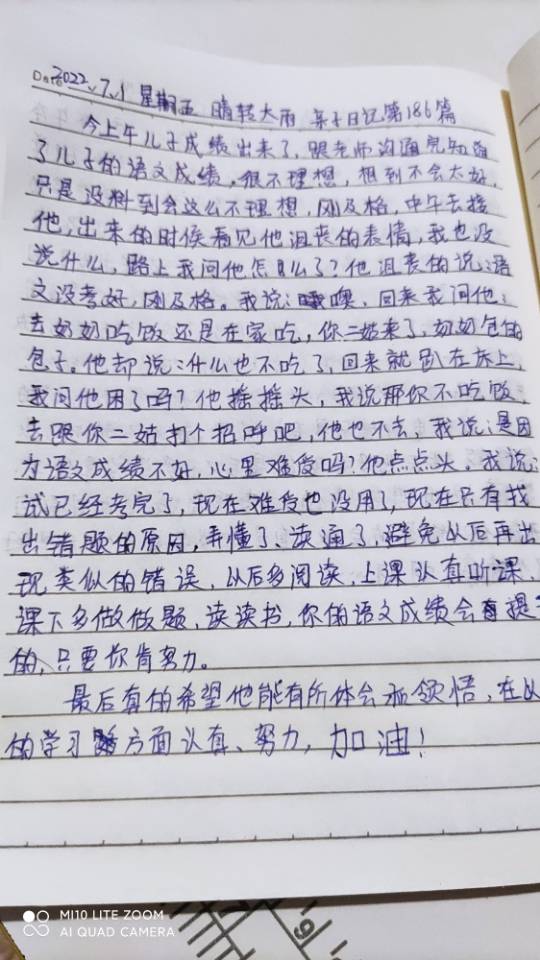 Date 2022.7.1 星期五 晴转大雨 亲子日记第186篇
今上午儿子成绩出来了,跟老师沟通完知道
了儿子的语文成绩,很不理想,想到不会太好,
只是没料到会这么不理想,刚及格,中午去接
他,出来的时候看见他沮丧的表情,我也没
说什么,路上我问他怎么了?他沮丧的说:语
文没考好,刚及格。我说:哦噢,回来我问他:
去奶奶吃饭还是在家吃,你二姑来了,奶奶包的
包子。他却说:什么也不吃了,回来就趴在床上,
我问他困了吗?他摇摇头,我说那你不吃饭,
去跟你二姑打个招呼吧,他也不去,我说:是因
为语文成绩不好,心里难受吗?他点点头,我说:
试已经考完了,现在难受也没用了,现在只有找
出错题的原因,弄懂了、读通了,避免以后再出
现类似的错误,以后多阅读,上课认真听课,
课下多做做题,读读书,你的语文成绩会有提
的,只要你肯努力。
最后真的希望他能有所体会和领悟,在以
的学习方面认真、努力,加油!
MI10 LITE ZOOM
AI QUAD CAMERA